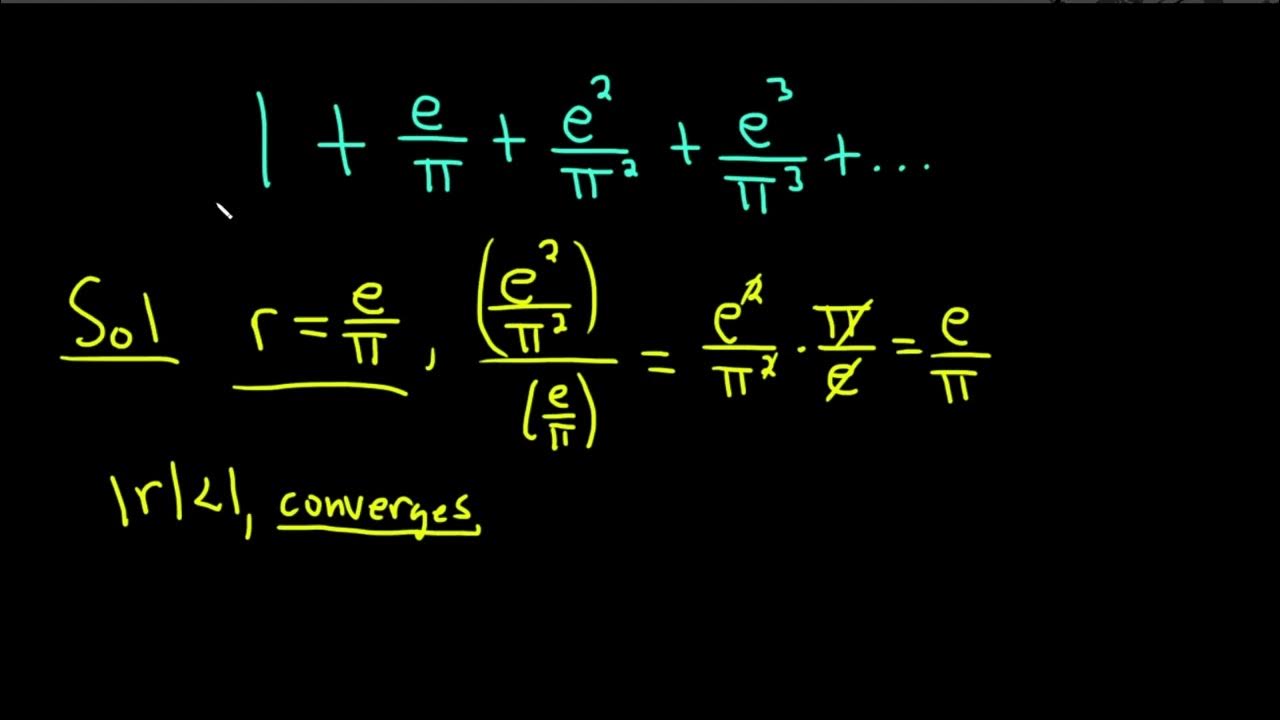 1 + e/π + e²/π² + e³/π³ + ...
Sol r = e/π, (e²/π²)/(e/π) = e²/π² · π/e = e/π
|r|<1, converges.